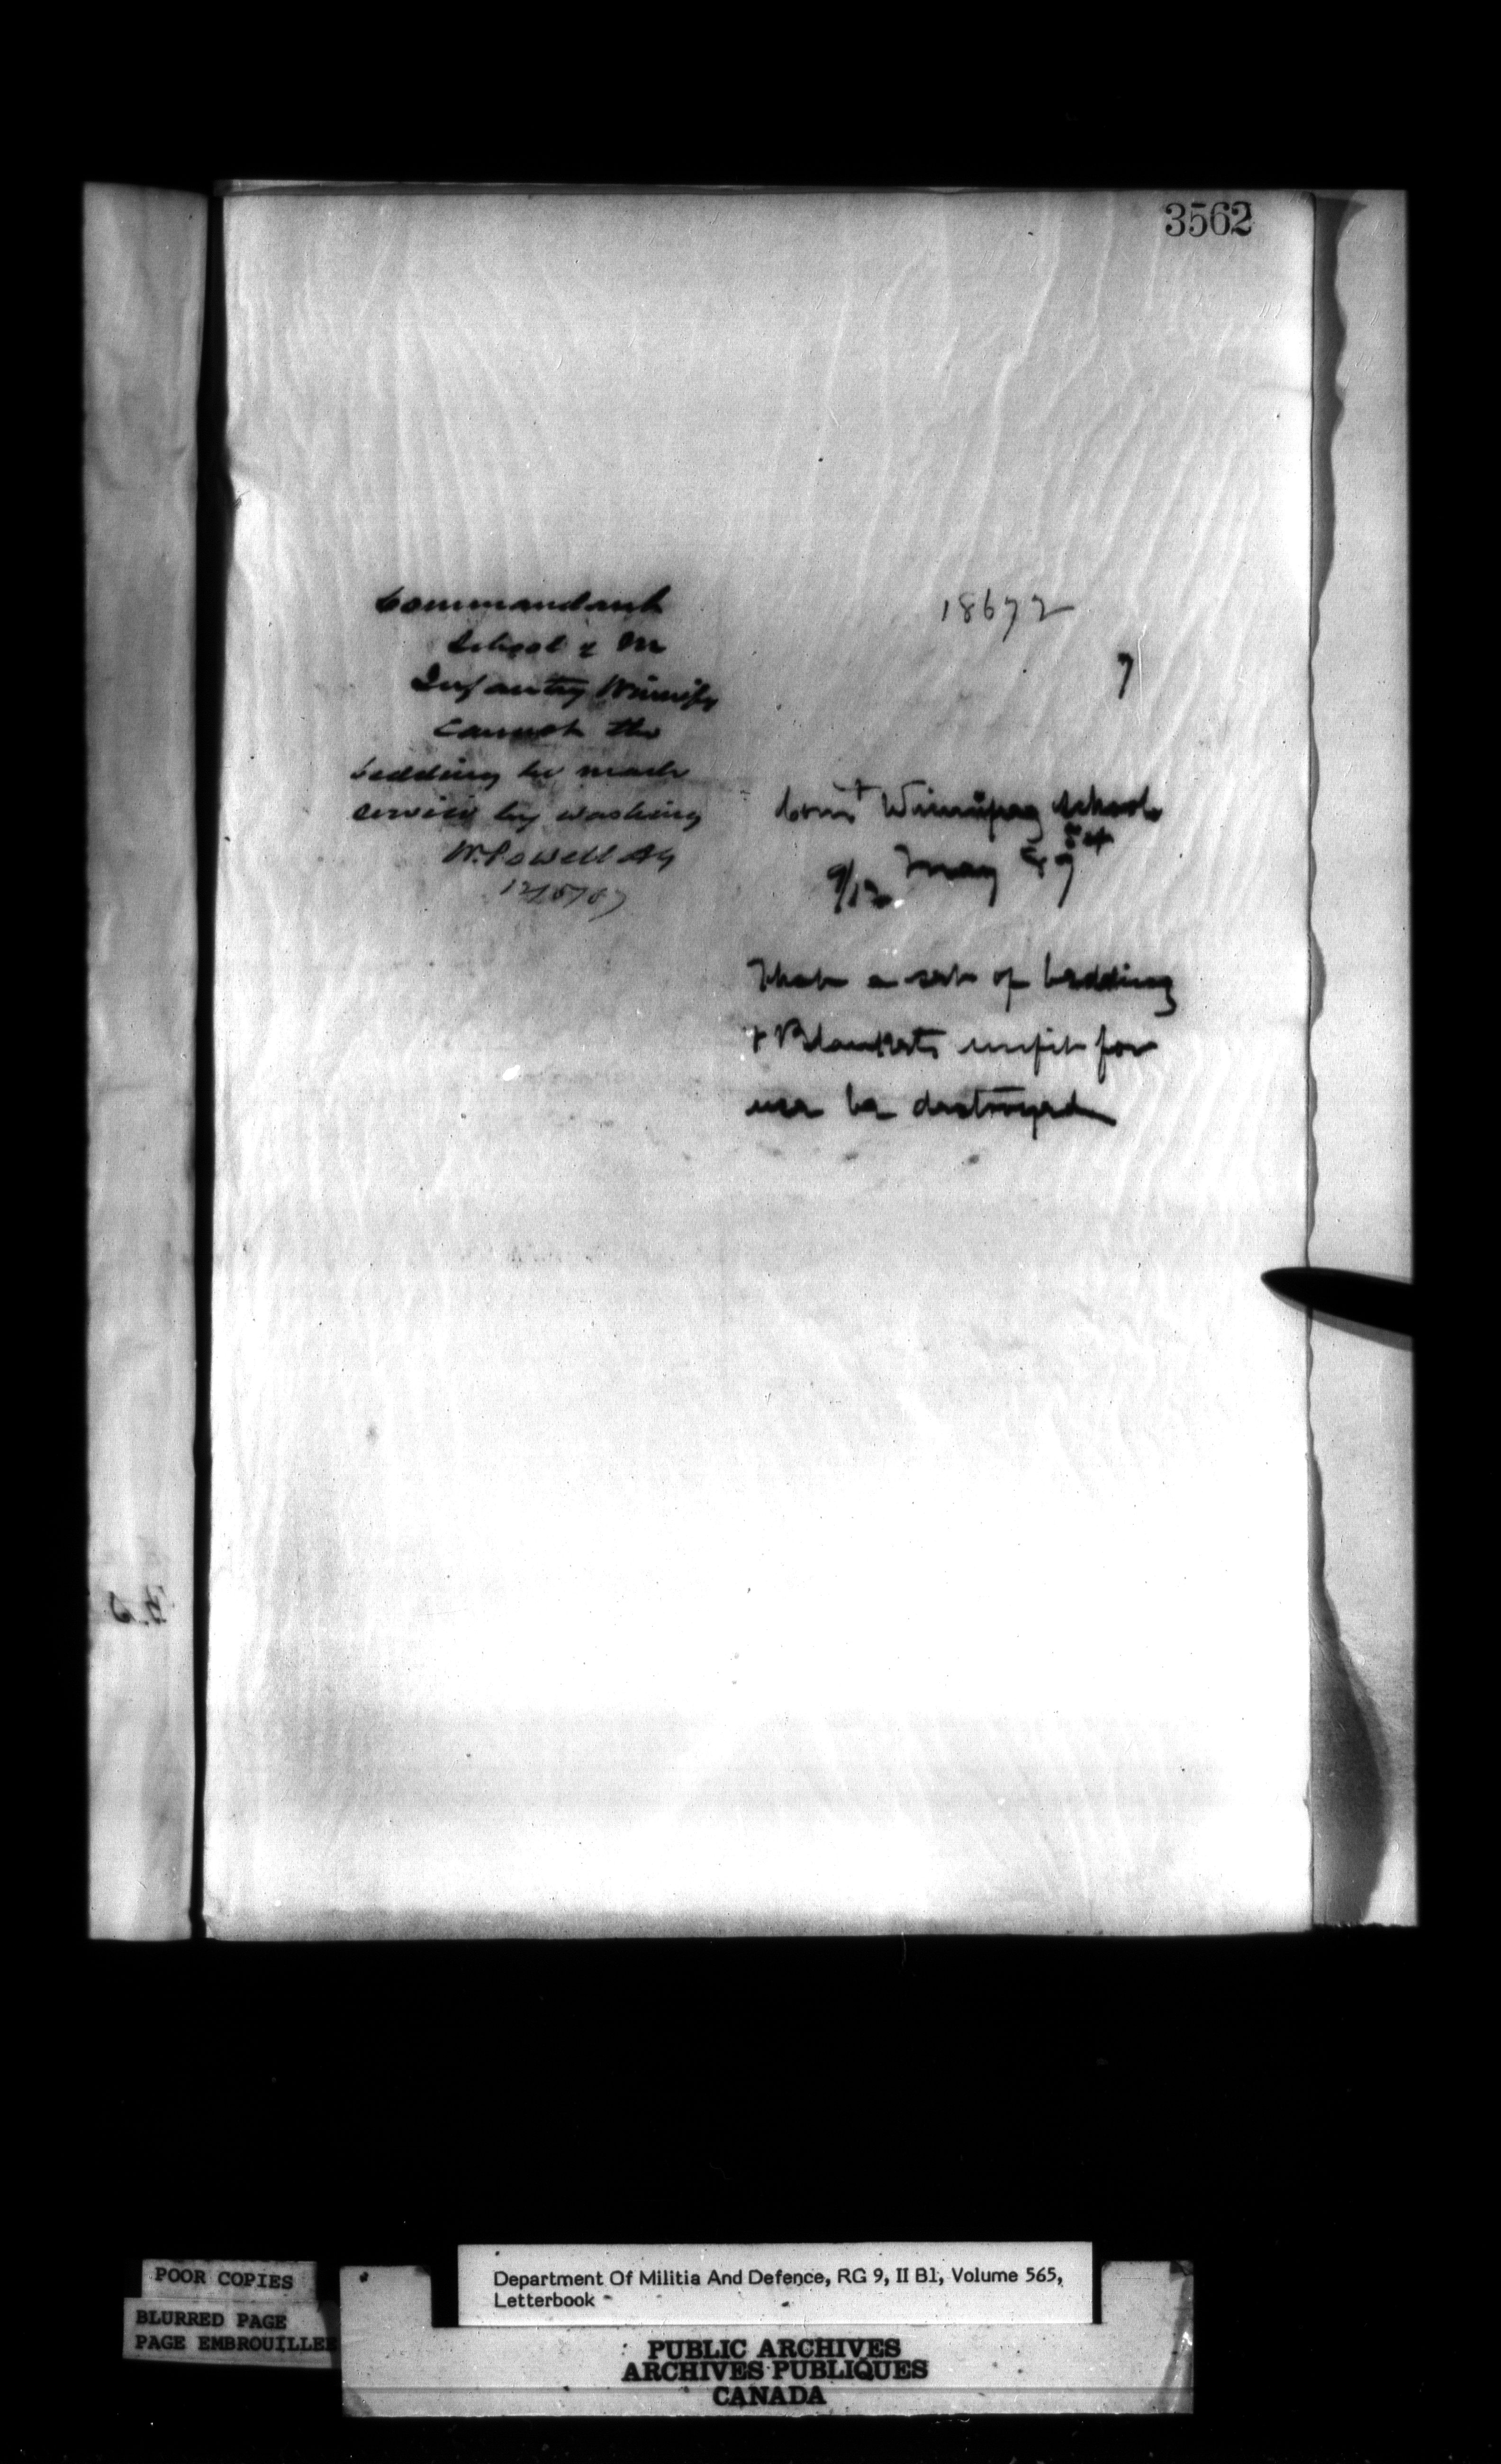 3562
Commandant
School of M
Infantry Winnipg
Cannot the
bedding be made
service by washing
W. Powell AG
12/5/87
18672
7
Comt Winnipeg School
9/12 May 87
That a set of bedding
& Blankets unfit for
use be destroyed
POOR COPIES
BLURRED PAGE
PAGE EMBROUILLEE
Department Of Militia And Defence, RG 9, II B1, Volume 565,
Letterbook
PUBLIC ARCHIVES
ARCHIVES PUBLIQUES
CANADA